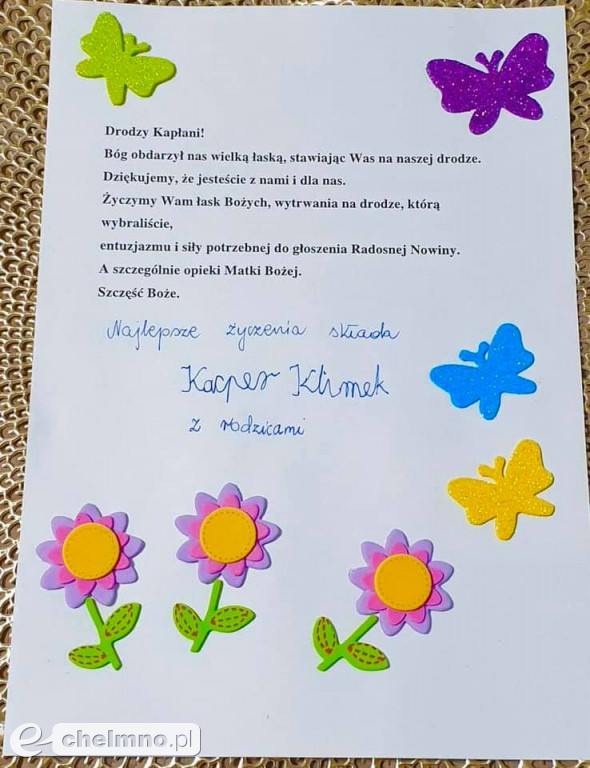 Drodzy Kapłani!
Bóg obdarzył nas wielką łaską, stawiając Was na naszej drodze.
Dziękujemy, że jesteście z nami i dla nas.
Życzymy Wam łask Bożych, wytrwania na drodze, którą
wybraliście,
entuzjazmu i siły potrzebnej do głoszenia Radosnej Nowiny.
A szczególnie opieki Matki Bożej.
Szczęść Boże.
Najlepsze życzenia składa
Kacper Klimek
z rodzicami
e-chelmno.pl